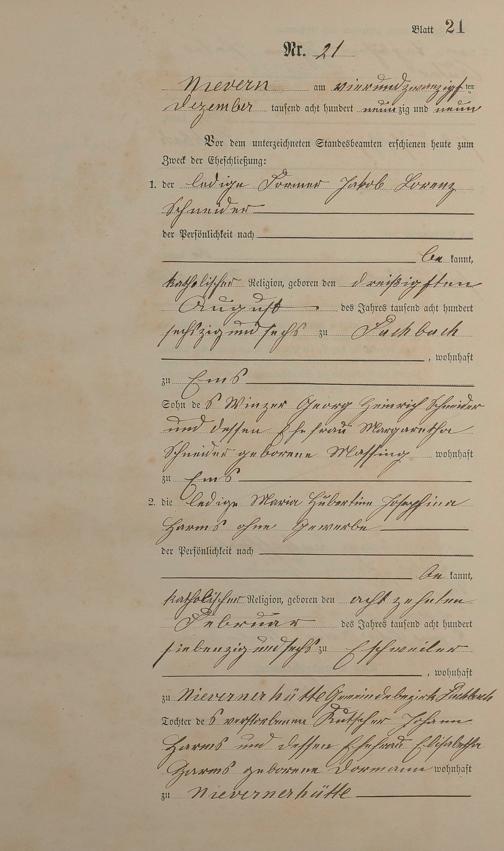 Blatt 21
Nr. 21
Nievern am vierundzwanzigsten
Dezember tausend acht hundert neunzig und neun
Vor dem unterzeichneten Standesbeamten erschienen heute zum
Zweck der Eheschließung:
1. der ledige Former Jakob Lorenz
Schneider
der Persönlichkeit nach
be kannt,
katholischer Religion, geboren den dreißigsten
August des Jahres tausend acht hundert
sechszig und sechs zu Fachbach
, wohnhaft
zu Ems
Sohn des Winzer Georg Heinrich Schneider
und dessen Ehefrau Margaretha
Schneider geborene Massing wohnhaft
zu Ems
2. die ledige Maria Hubertine Josephina
Harms ohne Gewerbe
der Persönlichkeit nach
be kannt,
katholischer Religion, geboren den achtzehnten
Februar des Jahres tausend acht hundert
siebenzig und sechs zu Eschweiler
, wohnhaft
zu Nievernerhütte Gemeindebezirk Fachbach
Tochter des verstorbenen Kutscher Johann
Harms und dessen Ehefrau Elisabetha
Harms geborene Dormann wohnhaft
zu Nievernerhütte